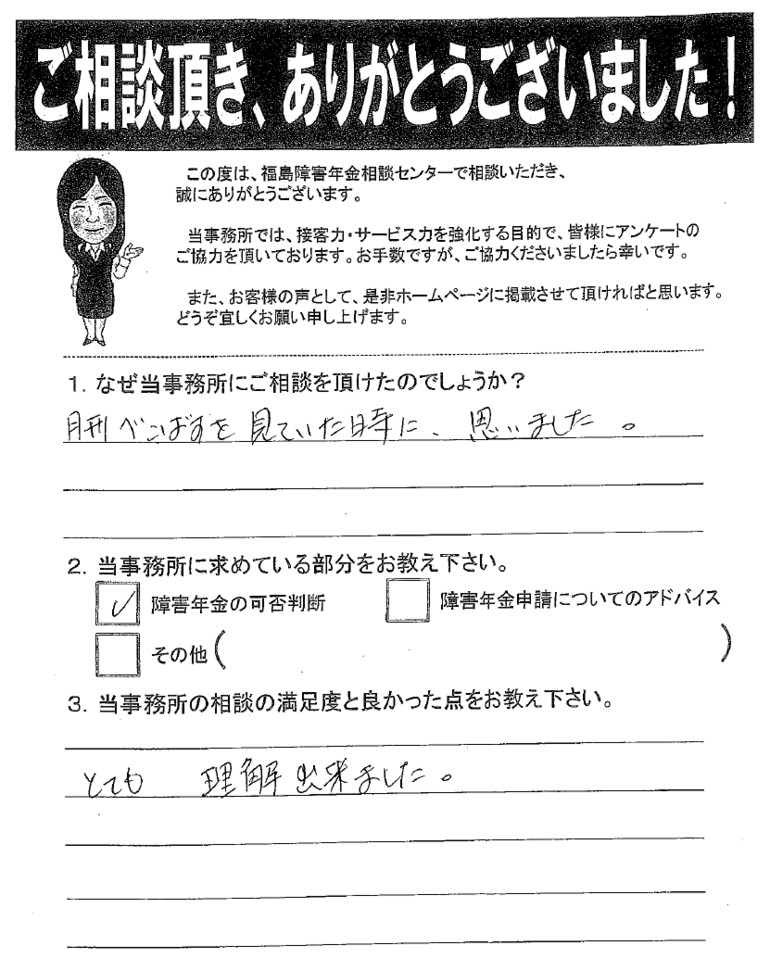 ご相談頂き、ありがとうございました！
この度は、福島障害年金相談センターで相談いただき、
誠にありがとうございます。
当事務所では、接客力・サービス力を強化する目的で、皆様にアンケートの
ご協力を頂いております。お手数ですが、ご協力くださいましたら幸いです。
また、お客様の声として、是非ホームページに掲載させて頂ければと思います。
どうぞ宜しくお願い申し上げます。
1. なぜ当事務所にご相談を頂けたのでしょうか？
月刊ぺんぱるを見ていた時に、思いました。
2. 当事務所に求めている部分をお教え下さい。
✓ 障害年金の可否判断
障害年金申請についてのアドバイス
その他（　）
3. 当事務所の相談の満足度と良かった点をお教え下さい。
とても 理解出来ました。